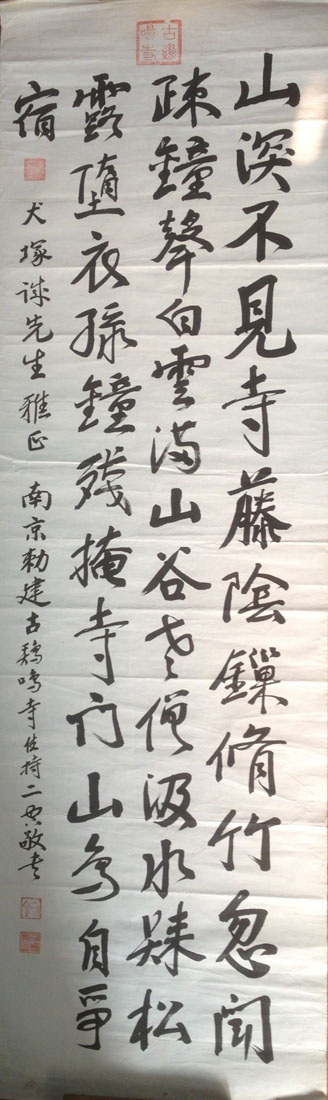 古鷄鳴寺
山深不見寺藤陰鏁脩竹忽聞
疎鐘聲白雲滿山谷老僧汲水歸松
露墮衣綠鐘殘掩寺门山鳥自爭
宿
犬塚誠先生雅正 南京勅建古鷄鳴寺住持二敬書